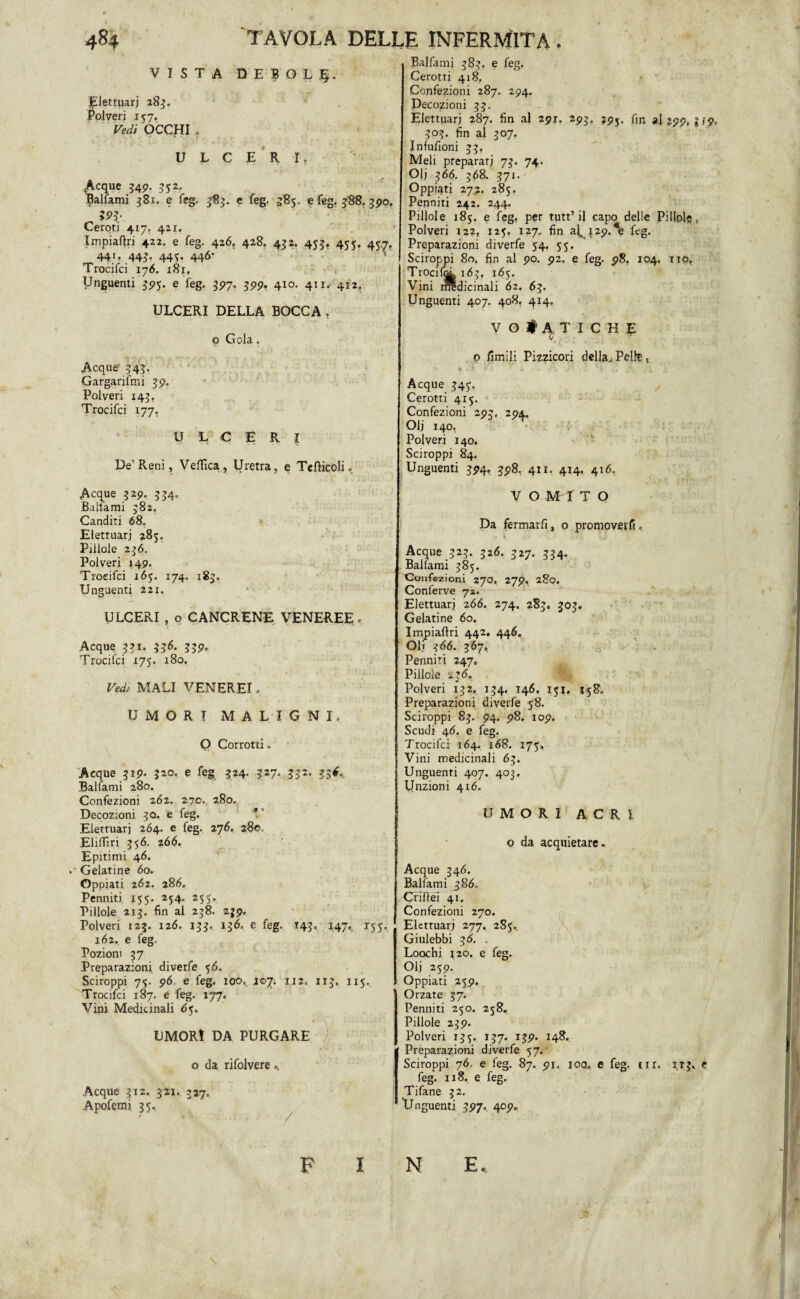 484 TAVOLA DELLE INFERMITA.
VISTA DEBOLE.
Elettuarj 283.
Polveri 157.
Vedi OCCHI.
ULCERI.
Acque 349. 352.
Balſami 381. e ſeg. 383. e ſeg. 385. e ſeg. 388. 390.
393.
Ceroti 417. 421.
Impiaſtri 422. e ſeg. 426. 428. 432. 453. 455. 457.
441. 443. 445. 446.
Trociſci 176. 181.
Unguenti 395. e ſeg. 397. 399. 410. 411. 412.
ULCERI DELLA BOCCA,
o Gola.
Acque 343.
Gargariſmi 39.
Polveri 143.
Trociſci 177.
ULCERI
De' Reni, Veſſica, Uretra, e Teſticoli.
Acque 329. 334.
Balſami 382.
Canditi 68.
Elettuarj 285.
Pillole 236.
Polveri 149.
Trociſci 165. 174. 183.
Unguenti 221.
ULCERI, o CANCRENE VENEREE.
Acque 331. 336. 339.
Trociſci 175. 180.
Vedi MALI VENEREI.
UMORI MALIGNI,
O Corrotti.
Acque 319. 320. e ſeg 324. 327. 332. 336.
Balſami 280.
Confezioni 262. 270. 280.
Decozioni 30. e ſeg.
Elettuarj 264. e ſeg. 276. 280.
Eliſſiri 356. 266.
Epitimi 46.
Gelatine 60.
Oppiati 262. 286.
Penniti 155. 254. 255.
Pillole 213. fin al 238. 239.
Polveri 123. 126. 133. 136. e ſeg. 143. 147. 155.
162. e ſeg.
Pozioni 37
Preparazioni diverſe 56.
Sciroppi 75. 96 e ſeg. 100. 107. 112. 113. 115.
Trociſci 187. e ſeg. 177.
Vini Medicinali 65.
UMORI DA PURGARE
o da riſolvere.
Acque 312. 321. 327.
Apoſemi 35.
Balſami 383. e ſeg.
Cerotti 418.
Confezioni 287. 294.
Decozioni 33.
Elettuarj 287. fin al 291. 293. 295. fin al 299. 319.
303. fin al 307.
Infuſioni 33.
Meli preparatj 73. 74.
Olj 366. 368. 371.
Oppiati 272. 285.
Penniti 242. 244.
Pillole 185. e ſeg. per tutt' il capo delle Pillole.
Polveri 122. 125. 127. fin al 129. e ſeg.
Preparazioni diverſe 54. 55.
Sciroppi 80. fin al 90. 92. e ſeg. 98. 104. 110.
Trociſci 163. 165.
Vini medicinali 62. 63.
Unguenti 407. 408. 414.
VOLATICHE
o ſimili Pizzicori della Pelle.
Acque 345.
Cerotti 415.
Confezioni 293. 294.
Olj 140.
Polveri 140.
Sciroppi 84.
Unguenti 394. 398. 411. 414. 416.
VOMITO
Da fermarſi, o promoverſi.
Acque 323. 326. 327. 334.
Balſami 385.
Confezioni 270. 279. 280.
Conſerve 72.
Elettuarj 266. 274. 283. 303.
Gelatine 60.
Impiaſtri 442. 446.
Olj 366. 367.
Penniti 247.
Pillole 236.
Polveri 132. 134. 146. 151. 158.
Preparazioni diverſe 58.
Sciroppi 83. 94. 98. 109.
Scudi 46. e ſeg.
Trociſci 164. 168. 175.
Vini medicinali 63.
Unguenti 407. 403.
Unzioni 416.
UMORI ACRI
o da acquietare.
Acque 346.
Balſami 386.
Criſtei 41.
Confezioni 270.
Elettuarj 277. 285.
Giulebbi 36.
Loochi 120. e ſeg.
Olj 259.
Oppiati 259.
Orzate 37.
Penniti 250. 258.
Pillole 239.
Polveri 135. 137. 139. 148.
Preparazioni diverſe 57.
Sciroppi 76. e ſeg. 87. 91. 100. e ſeg. 111. 113. e
ſeg. 118. e ſeg.
Tiſane 32.
Unguenti 397. 409.
FINE.